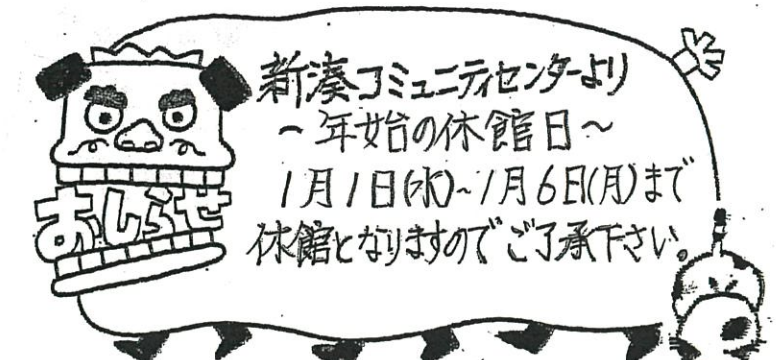 おしらせ
新湊コミュニティセンターより
~年始の休館日~
1月1日(水)~1月6日(月)まで
休館となりますのでご了承下さい。